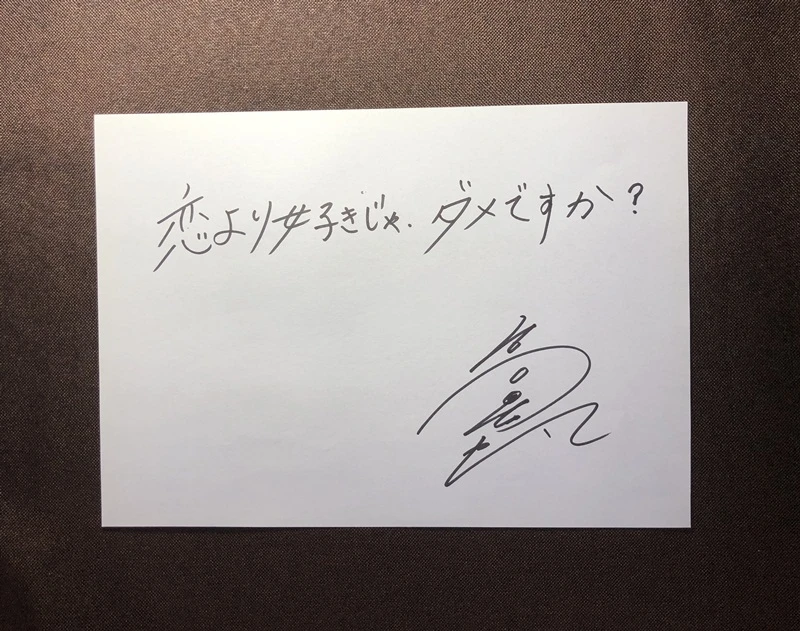 恋より好きじゃ、ダメですか？